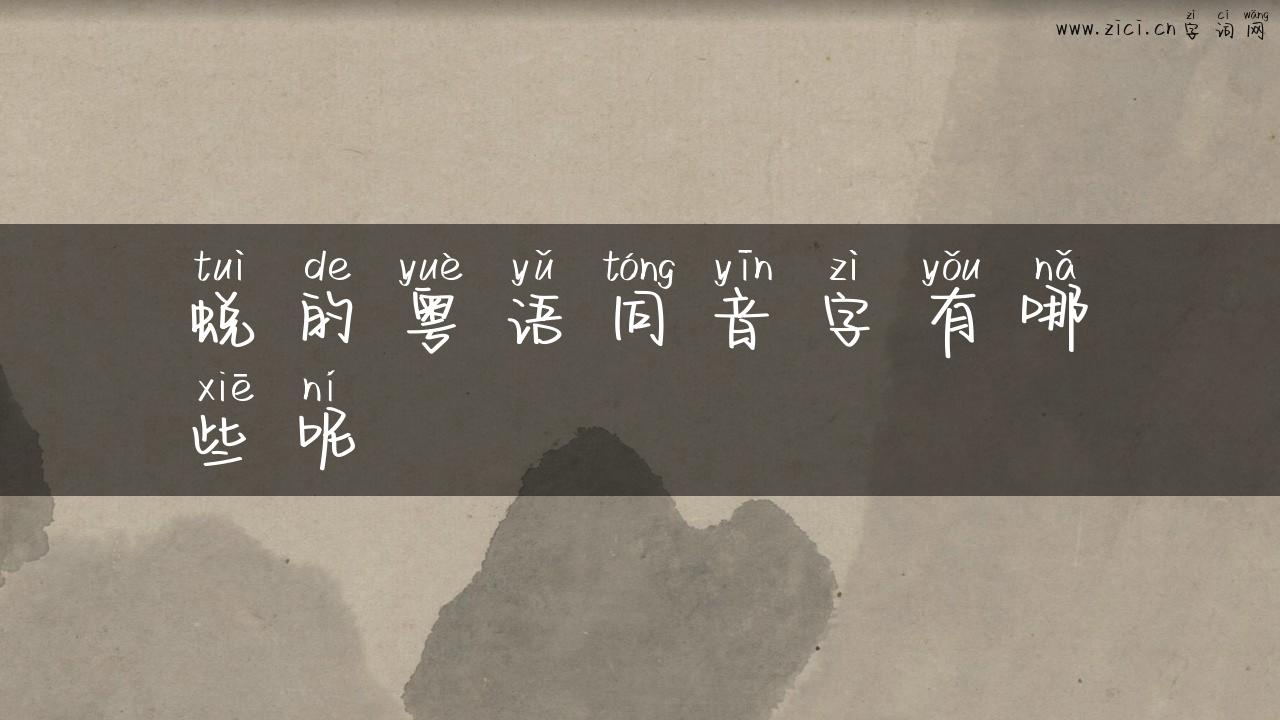 zì cí wǎng
www.zici.cn字词网
tuì de yuè yǔ tóng yīn zì yǒu nǎ
蜕的粤语同音字有哪
xiē ní
些呢